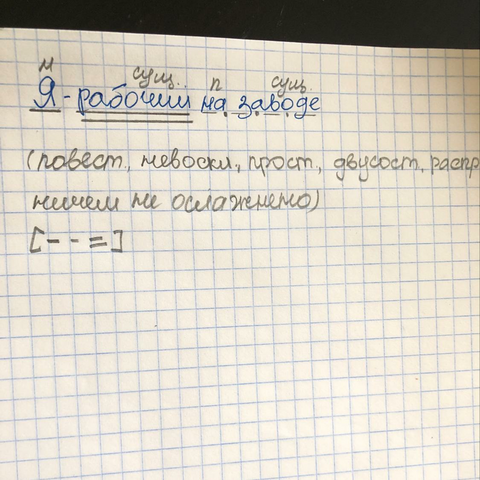 м сущ. п сущ.
Я - рабочий на заводе
(повест., невоскл., прост., двусост., распр
ничем не ослажнено)
[- - =]